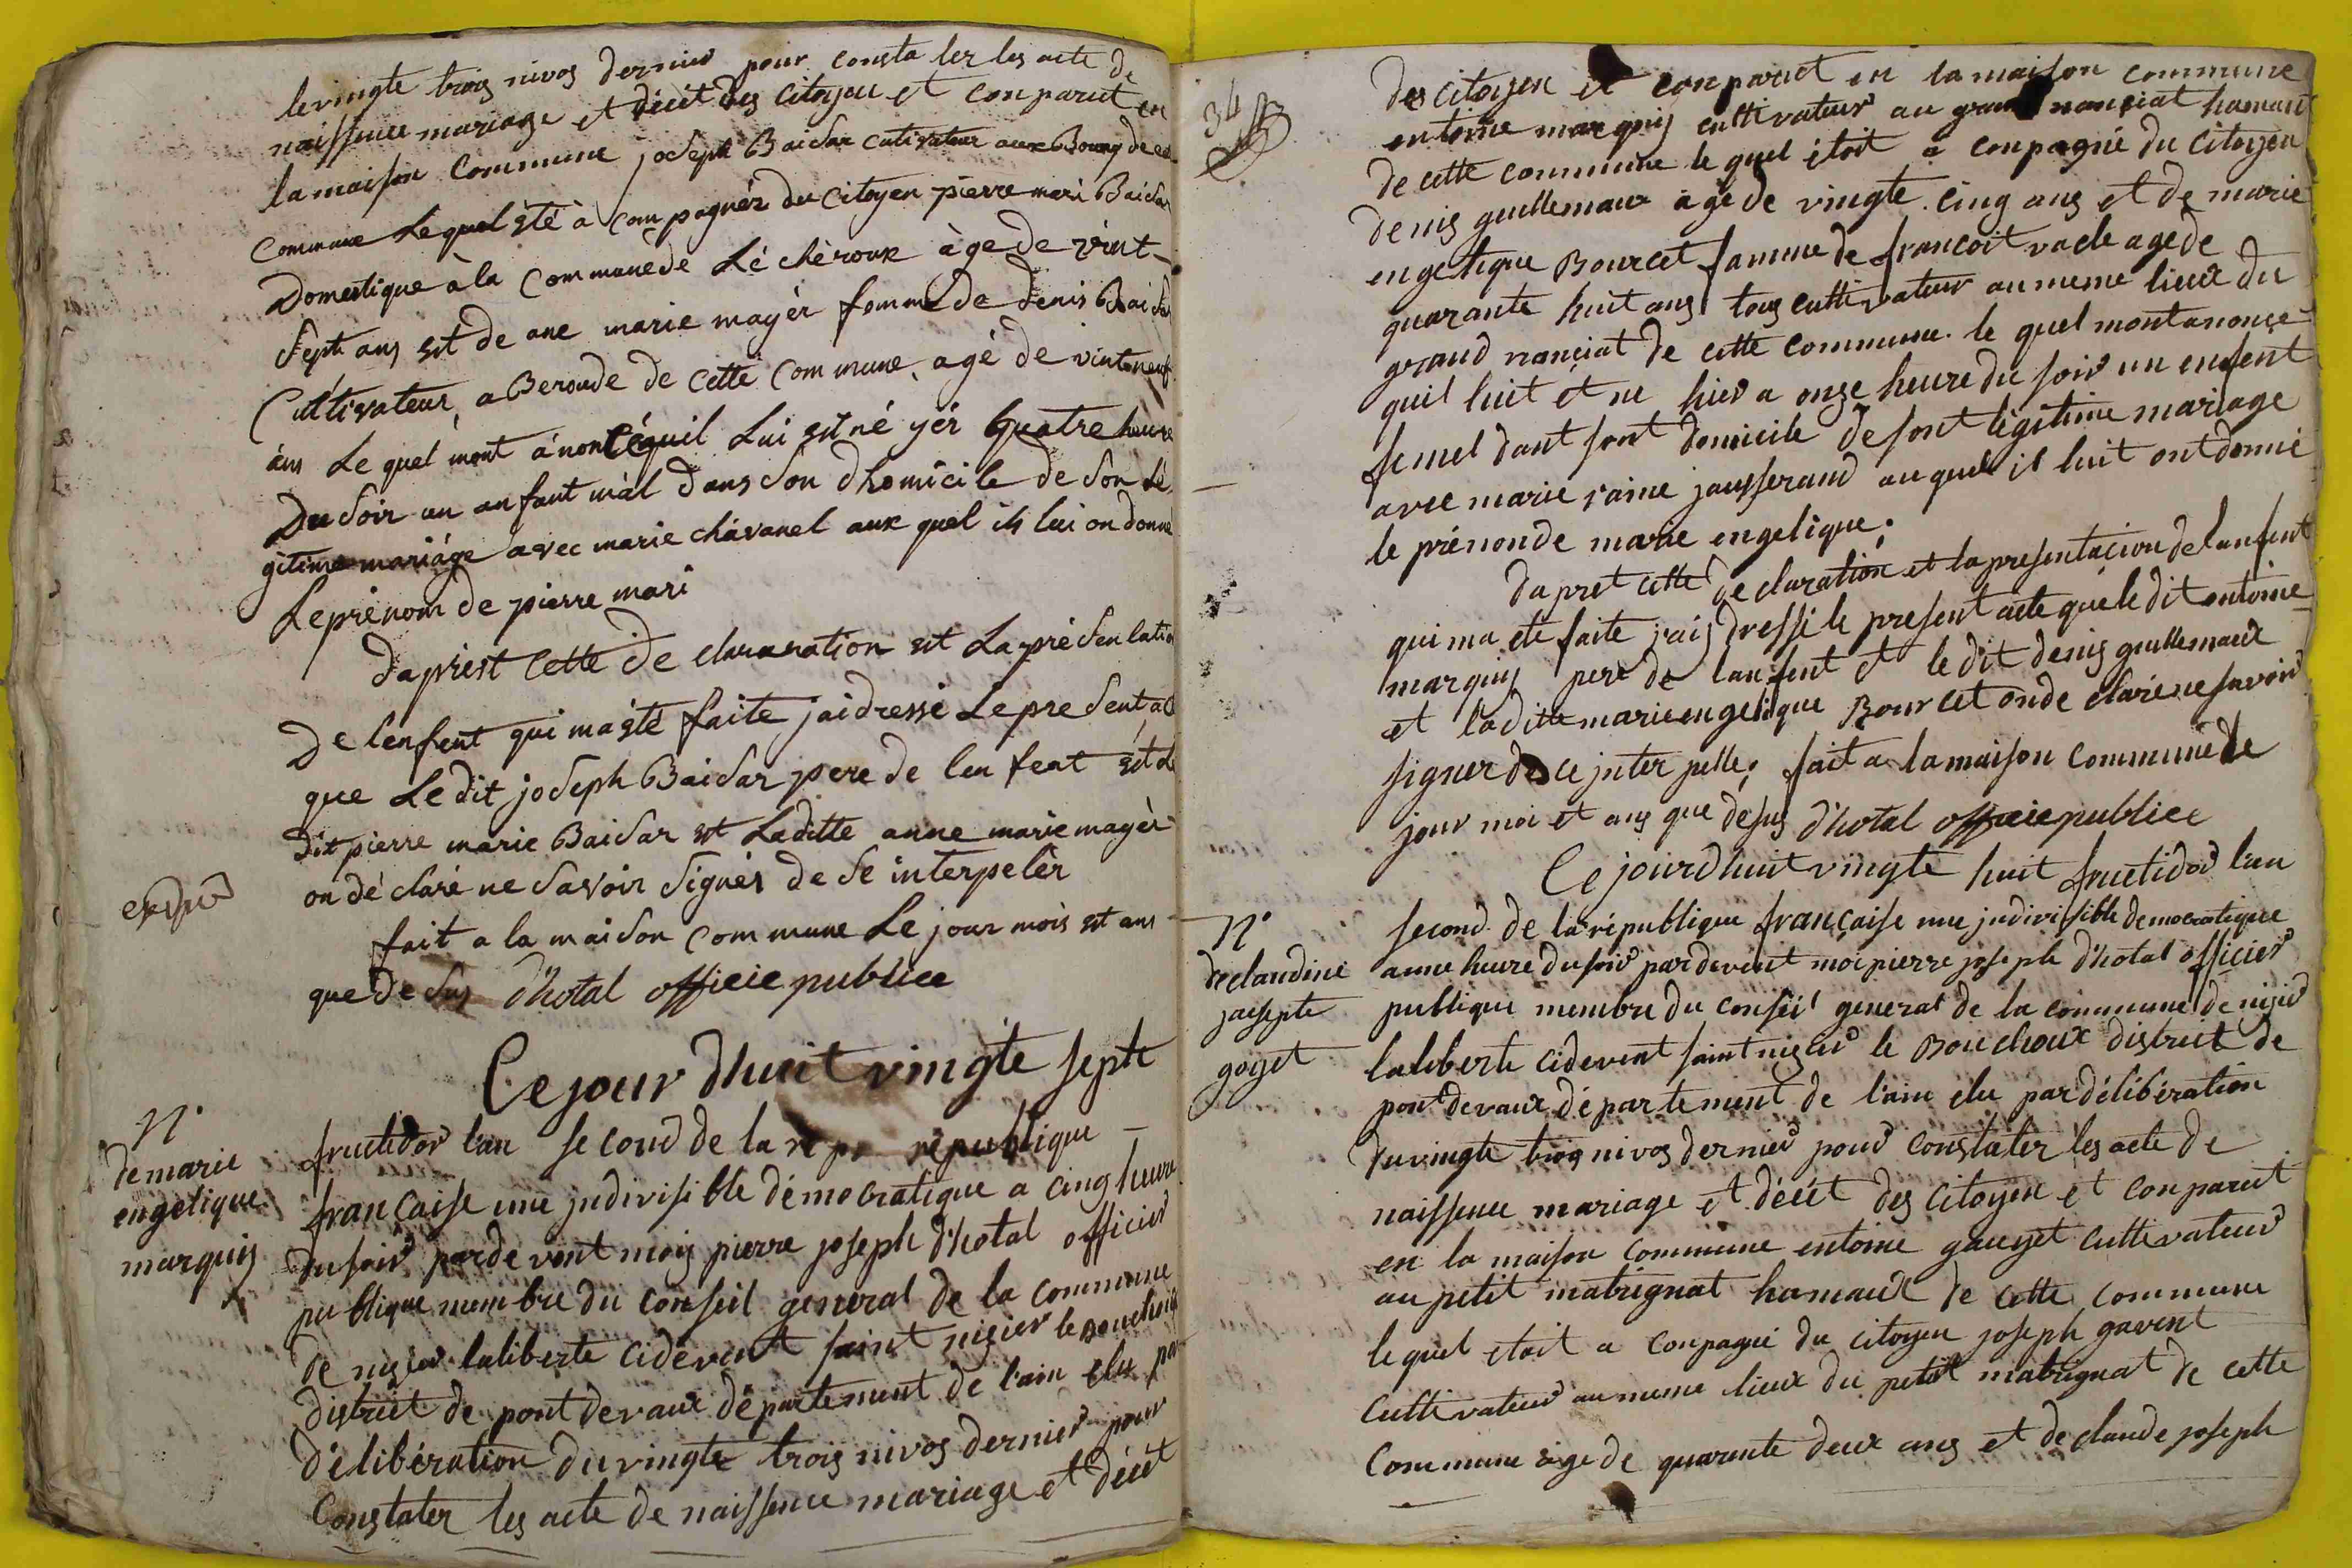 levingte trois nivos dernier pour consta ler les acte de
naissence mariage et décét des Citoyen et conparut en
la maison Commune joseph Baisar cutivateur aux Bourg de ce
Commune Le quel été à Compagnér du Citoyen pierre mari Baisar
Domestique à la Commune de Lé chéroux àge de vint-
sept ans est de ane marie mayér fomme de denis Baisar
Cultivateur, a Beroude de Cette Commune, agé de vinteneuf
ans Le quel mont ánoncéquil Lui est né yér Quatre heure
Du Soir un anfant mâl Dans Son Dhomicile de Son Lé
gitime mariáge avec marie chavanel aux quel ils lui on donné
Le prénom de pierre mari
Daprèst Cette De claranation est La présentatio
De lenfent qui ma été faite jai dressé Le present ac
que Le dit joseph Baisar pere de len fent est Le
Dit pierre marie Baisar est Laditte anne marie mayèr
on dé claré ne Savoir Signér de Se interpelér
fait a la maison Commune Le jour mois est ans
que De Sus D'hotal officie publice
Ce jour Dhuit vingte septe
N°
de marie
engelique
marquis
fructidor l'an second de la repu république
francaise une indivisible démocratique a cinq heure
Du soir parde vent mois pierre joseph D'hotal officier
publique membre du Conseil general de la Commune
De nizier laliberte cidevent saint nizier le Bouchoux
District de pont de vaux Département de l'ain elu par
Délibération du vingte trois nivos dernier pour
Constater les acte de naissence mariage et décét
34
des Citoyen et conparut en la maison commune
entoine marquis cultivateur au grand nanciat hamaux
De cette commune le quel étoit a conpagné du Citoyen
denis guillemaux age de vingte cinq ans et de marie
engelique Bourcet famme de francoit vacle age de
quarante huit ans tous cultivateur au meme lieux du
grand nanciat de cette commune le quel montanonce
quil luit et ne hier a onze heure du soir un enfent
femel dant sont Domicile de sont légitime mariage
avec marie raine jausserand au quel il luit ont donné
le prénon de marie engelique;
Dapret cette De claration et la presentacion delanfent
qui ma eté faite jais dressé le present acte que le dit entoine
marquis pere de lanfent et le dit denis guillemaux
et laditte marie engelique Bourcet on de claré ne savoir
signer de ce inter pellé; fait a la maison commune le
jour moi et ans que desus D'hotal officie publice
Ce jour d'huit vingte huit fructidor l'an
N°
de claudine
josepte
goyet
second de la république française une indivisible democratique
a une heure du soir par devent moi pierre joseph D'hotal officier
publique membre du conseil general de la commune de nizier
laliberte cidevent saint nizier le Bouchoux district de
pont devaux département de l'ain elu par délibération
du vingte trois nivos dernier pour constater les acte de
naissence mariage et décét des Citoyen et conparut
en la maison commune entoine gauyet cultivateur
au petit matrignat hamaux de cette commune
le quel etoit a conpagné du citoyen joseph gavent
cultivateur au meme lieux du petit matrignat de cette
Commune age de quarente deux ans et de claude joseph